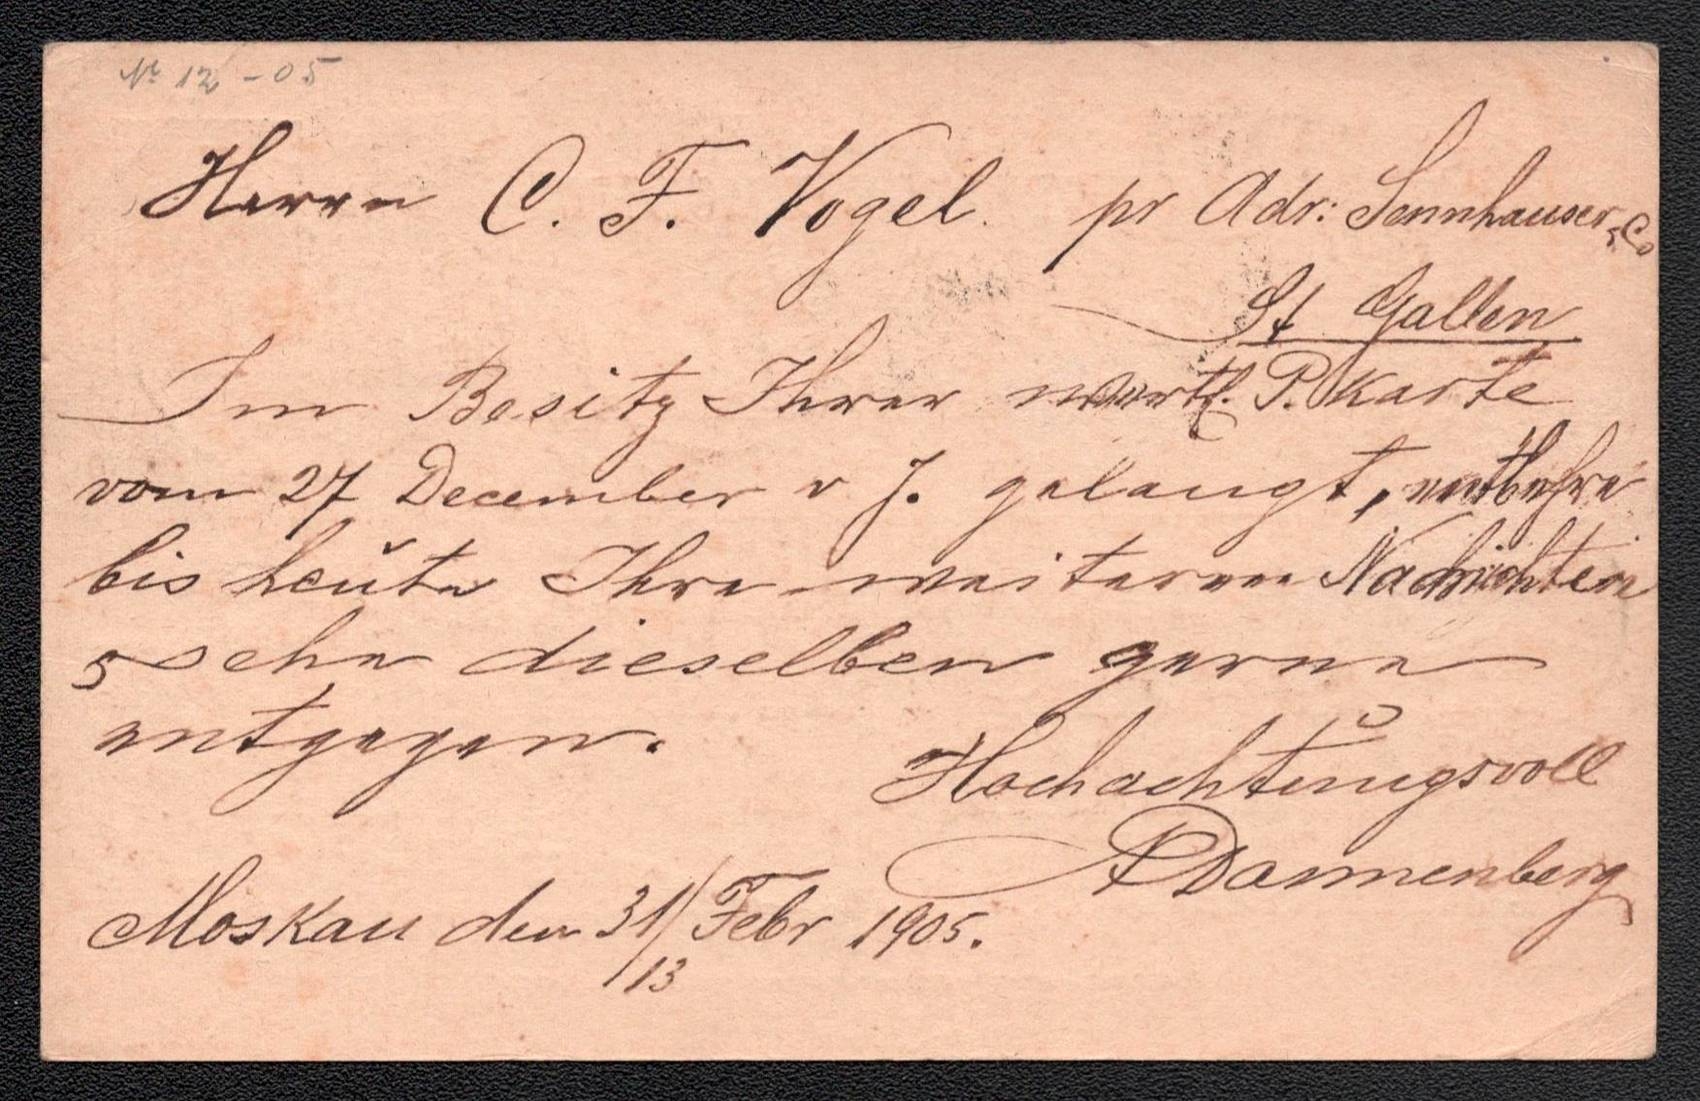 № 12 - 05
Herrn C. F. Vogel. pr Adr: Sennhauser & Co
St Gallen
Im Besitz Ihrer werth. P. Karte
vom 27 December v J. gelangt, entbehre
bis heute Ihre weiteren Nachrichten
& sehe dieselben gerne
entgegen.
Hochachtungsvoll
A Dannenberg
Moskau den 31/13 Febr 1905.